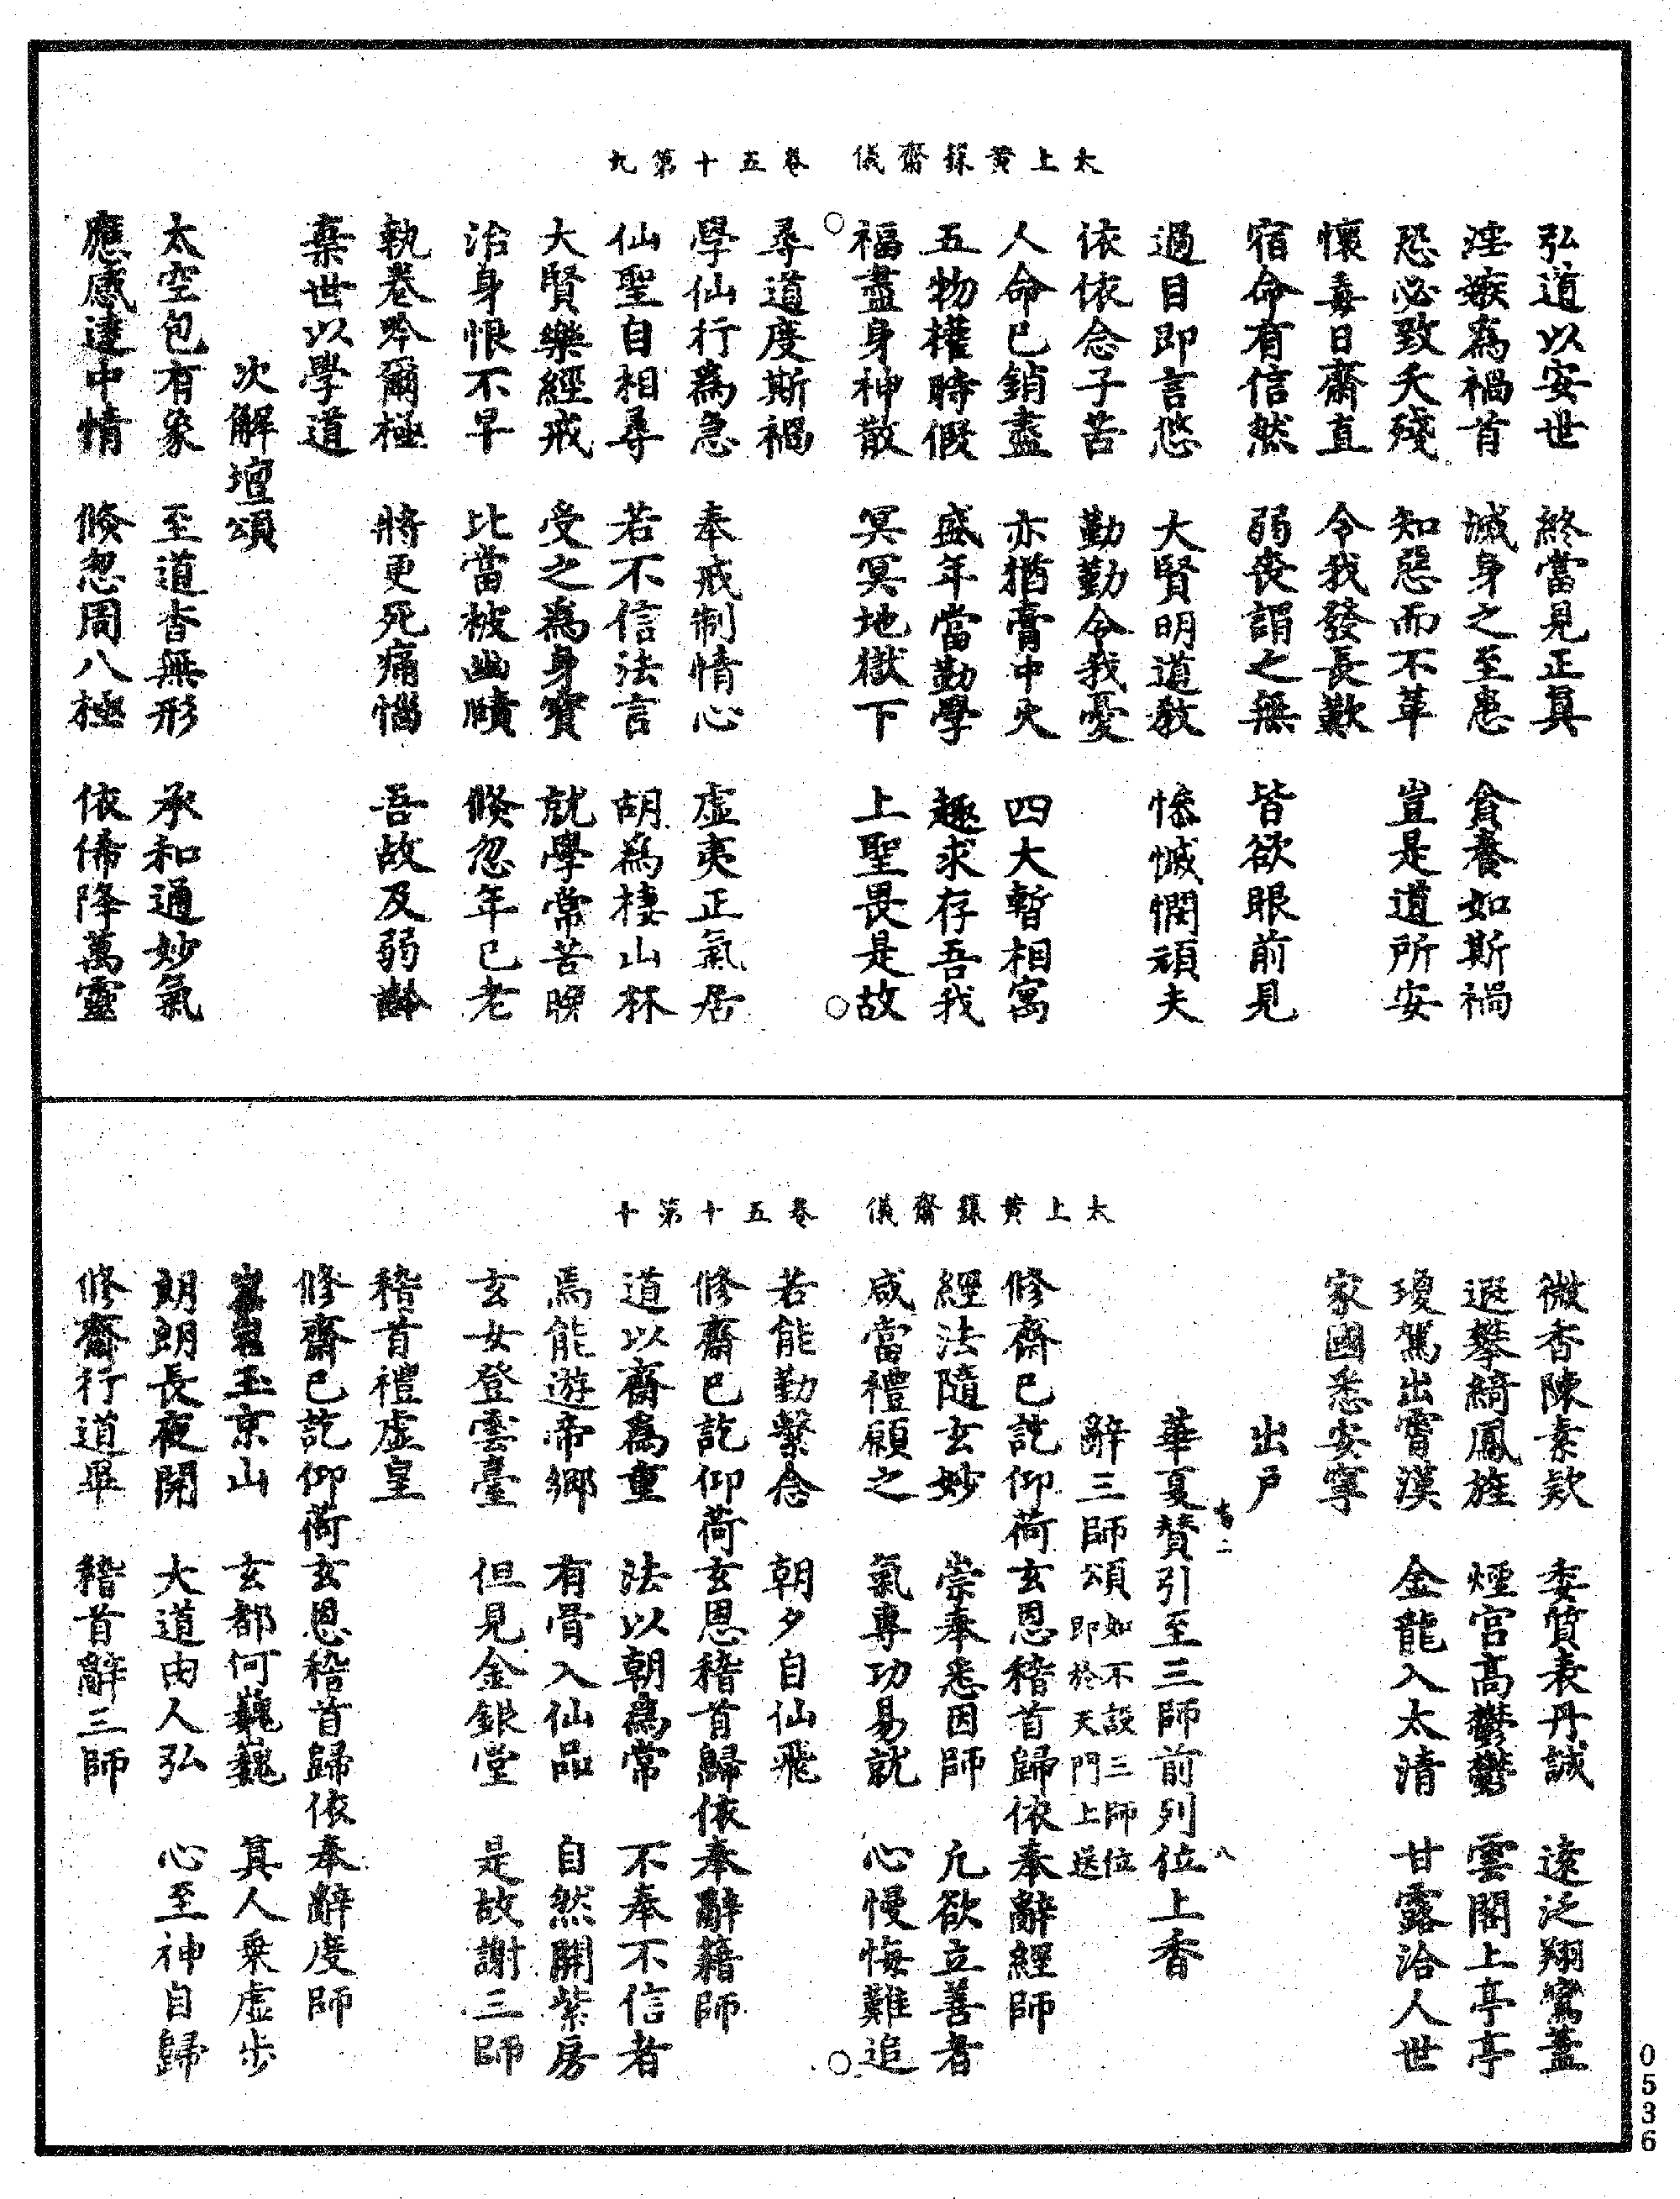 太上黄籙齋儀　卷五十第九
弘道以安世　終當見正真
淫嫉爲禍首　滅身之至患　貪養如斯禍
恐必致夭殘　知惡而不革　豈是道所安
懷毒日齋直　令我發長歎
宿命有信然　弱喪謂之無　皆欲眼前見
過目即言悠　大賢明道教　慘慽憫頑夫
依依念子苦　勤勤令我憂
人命已銷盡　亦猶膏中火　四大暫相寓
五物權時假　盛年當勤學　趣求存吾我
福盡身神散　冥冥地獄下　上聖畏是故
尋道度斯禍
學仙行爲急　奉戒制情心　虛夷正氣居
仙聖自相尋　若不信法言　胡爲棲山林
大賢樂經戒　受之爲身寶　就學常苦晚
治身恨不早　比當被幽牘　倐忽年已老
執卷吟爾極　將更死痛惱　吾故及弱齡
棄世以學道
次解壇頌
太空包有象　至道杳無形　承和通妙氣
應感達中情　倐忽周八極　依俙降萬靈
太上黄籙齋儀　卷五十第十
微香陳素欵　委質表丹誠　遠泛翔鸞蓋
遐攀綺鳳旌　煙宮高鬱鬱　雲閣上亭亭
瓊駕出霄漢　金龍入太清　甘露洽人世
家國悉安寧
出户
華夏贊引至三師前列位上香
辭三師頌如不設三師位即於天門上送
修齋已訖仰荷玄恩稽首歸依奉辭經師
經法隨玄妙　崇奉悉因師　凢欲立善者
咸當禮願之　氣專功易就　心慢悔難追
若能勤繫念　朝夕自仙飛
修齋已訖仰荷玄恩稽首歸依奉辭籍師
道以齋爲重　法以朝爲常　不奉不信者
焉能遊帝鄉　有骨入仙品　自然開紫房
玄女登雲臺　但見金銀堂　是故謝三師
稽首禮虛皇
修齋已訖仰荷玄恩稽首歸依奉辭度師
玉京山　玄都何巍巍　真人乘虛步
朗朗長夜開　大道由人弘　心至神自歸
修齋行道畢　稽首辭三師
0536